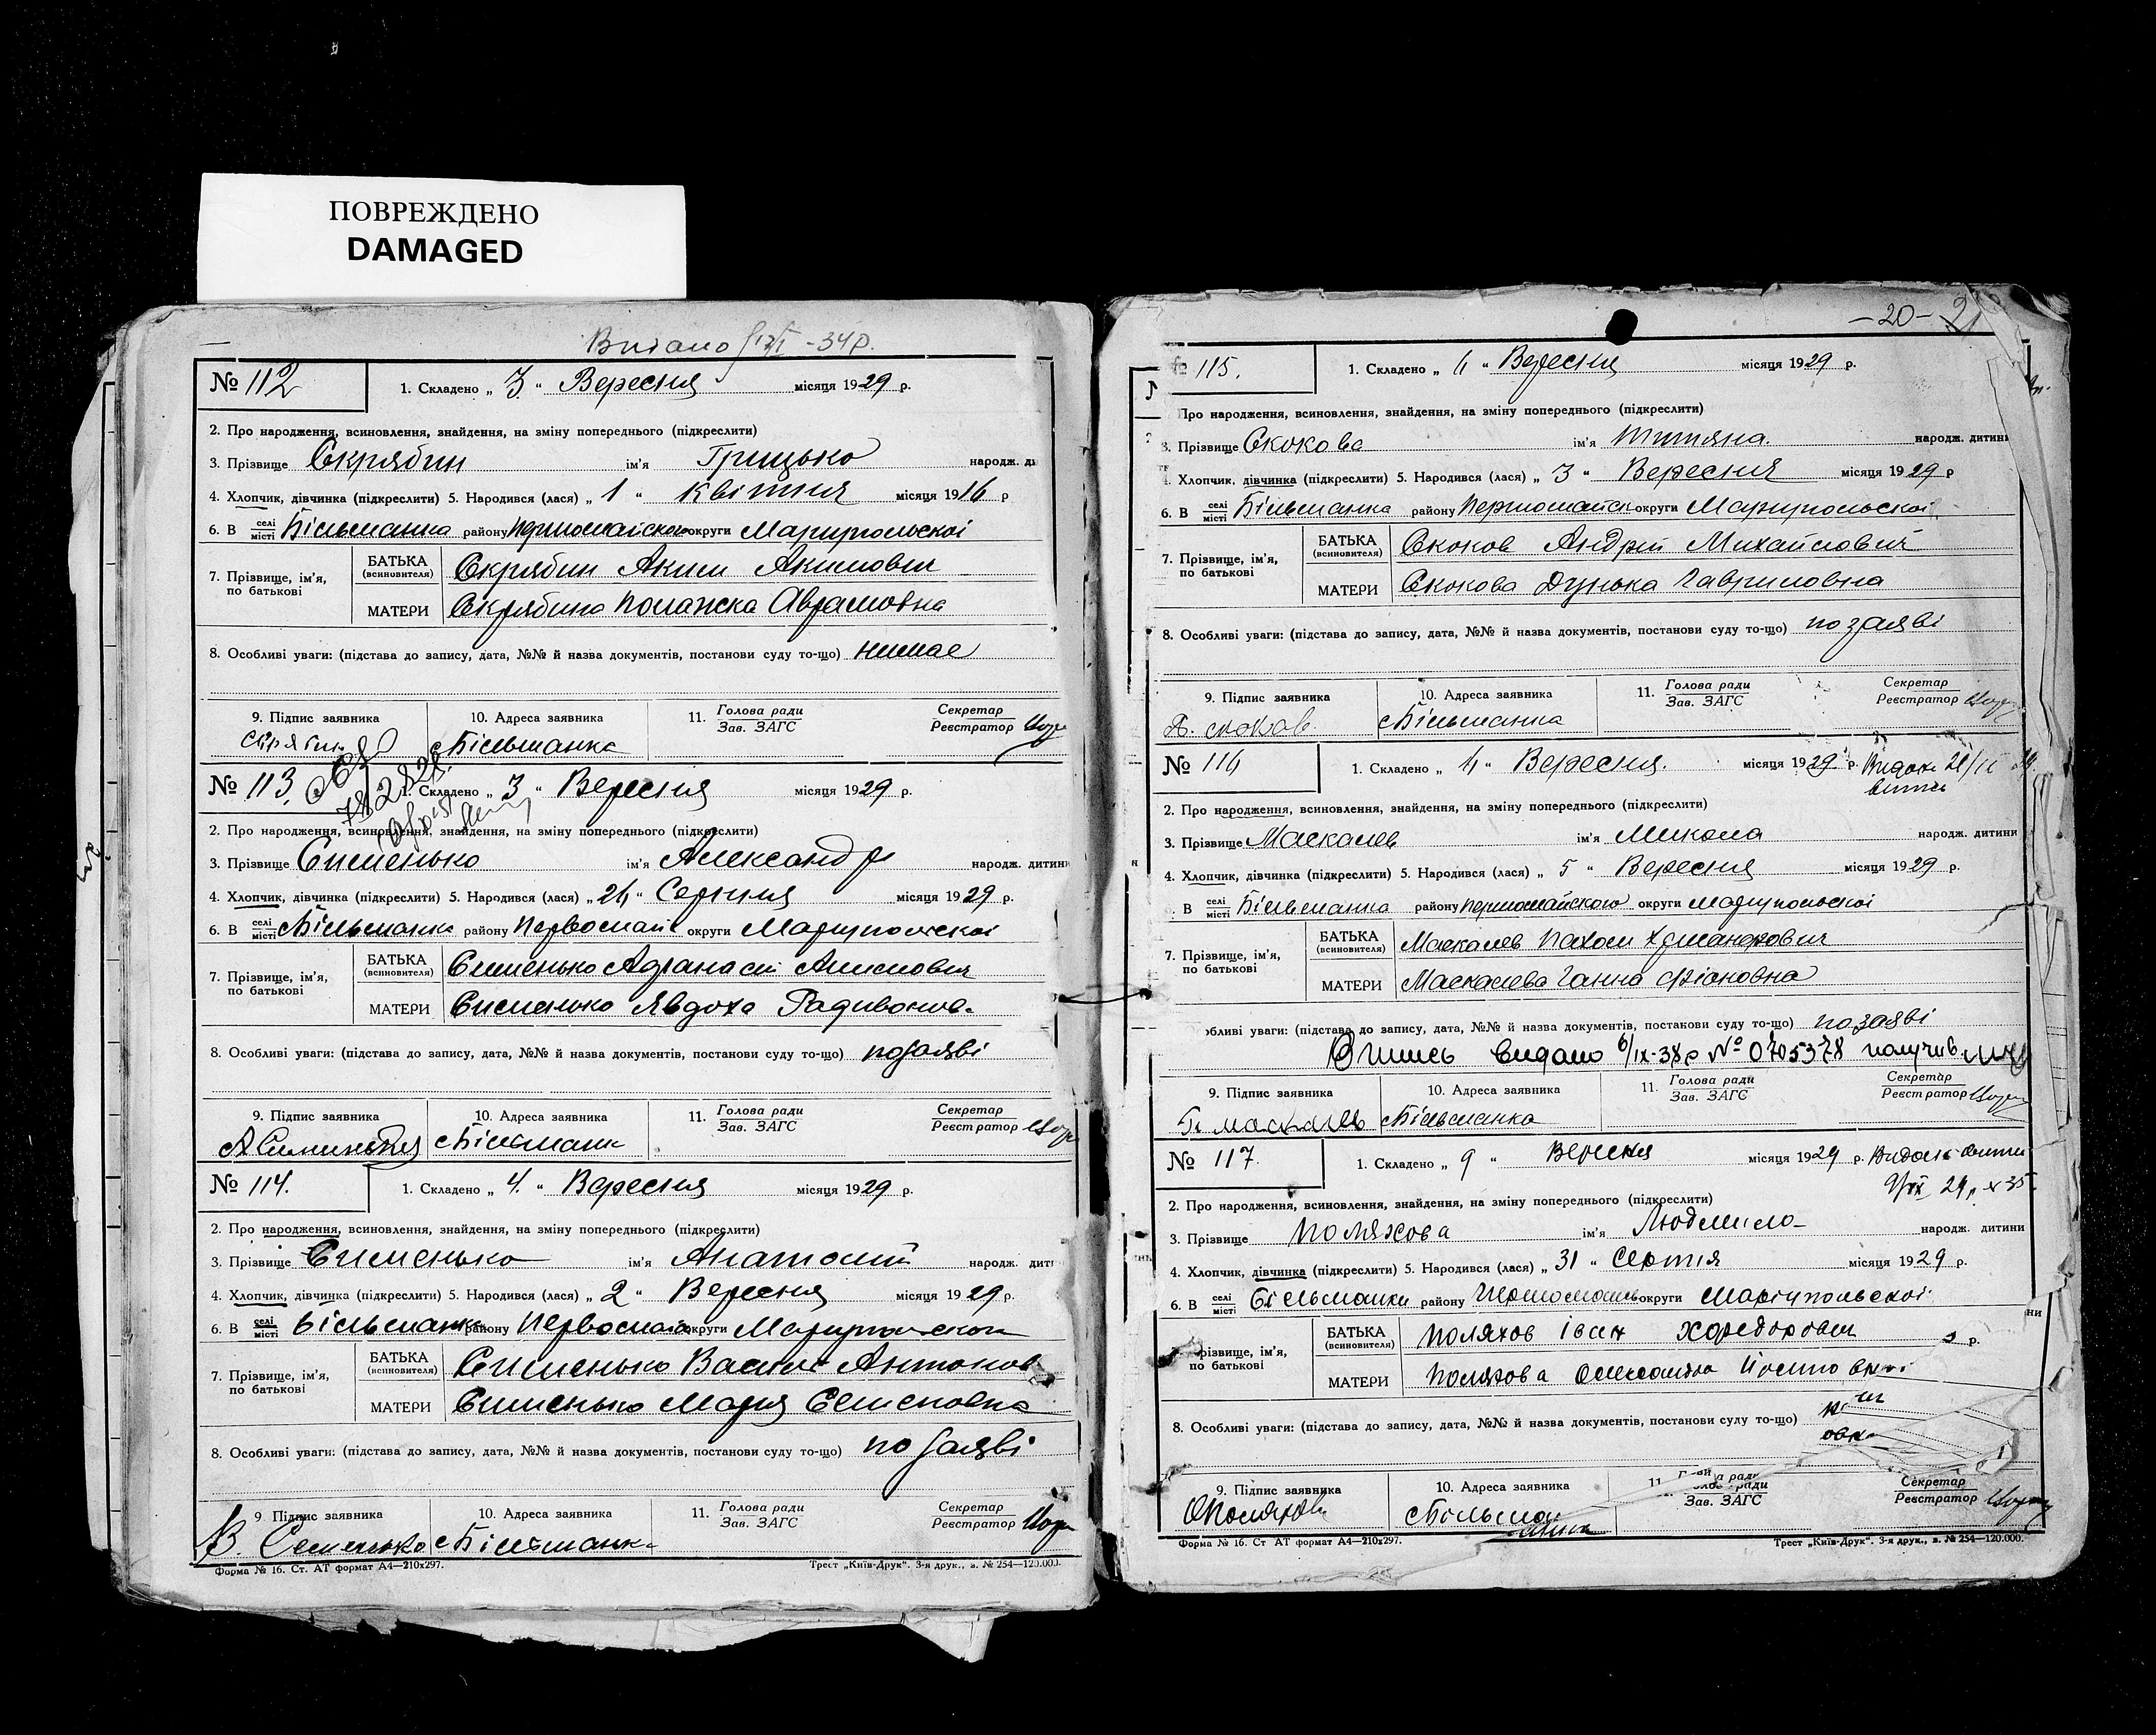 ПОВРЕЖДЕНО
DAMAGED
Видано -34р.
№ 112
1. Складено „ 3 “ Вересня місяця 1929 р.
2. Про народження, всиновлення, знайдення, на зміну попереднього (підкреслити)
3. Прізвище Скрябин ім'я Грицько народж.
4. Хлопчик, дівчинка (підкреслити) 5. Народився (лася) „ 1 “ Квітня місяця 1916 р
6. В селі місті Більманка району Первомайского округи Мариупольскої
7. Прізвище, ім'я, по батькові
БАТЬКА (всиновителя) Скрябин Аким Акимович
МАТЕРИ Скрябина Поланска Аврамовна
8. Особливі уваги: (підстава до запису, дата, №№ й назва документів, постанови суду то-що) немає
9. Підпис заявника 10. Адреса заявника 11. Голова ради Зав. ЗАГС Секретар Реєстратор
Скрябин Більманка
№ 113.
1. Складено „ 3 “ Вересня місяця 1929 р.
2. Про народження, всиновлення, знайдення, на зміну попереднього (підкреслити)
3. Прізвище Сименько ім'я Александр народж. дитини
4. Хлопчик, дівчинка (підкреслити) 5. Народився (лася) „ 24 “ Серпня місяця 1929 р.
6. В селі місті Більманка району Первомай округи Мариупольскої
7. Прізвище, ім'я, по батькові
БАТЬКА (всиновителя) Сименько Афанасій
МАТЕРИ Сименько Явдоха Радивонов.
8. Особливі уваги: (підстава до запису, дата, №№ й назва документів, постанови суду то-що) по заяві
9. Підпис заявника 10. Адреса заявника 11. Голова ради Зав. ЗАГС Секретар Реєстратор
Більманк
№ 114.
1. Складено „ 4. “ Вересня місяця 1929 р.
2. Про народження, всиновлення, знайдення, на зміну попереднього (підкреслити)
3. Прізвище Сименько ім'я Анатолий народж.
4. Хлопчик, дівчинка (підкреслити) 5. Народився (лася) „ 2 “ Вересня місяця 1929 р.
6. В селі місті Більманка району Первомай округи Мариупольскои
7. Прізвище, ім'я, по батькові
БАТЬКА (всиновителя) Сименько Василь Антонов
МАТЕРИ Сименько Мария Семеновна
8. Особливі уваги: (підстава до запису, дата, №№ й назва документів, постанови суду то-що) по заяві
9. Підпис заявника 10. Адреса заявника 11. Голова ради Зав. ЗАГС Секретар Реєстратор
В. Семенько Більманк
Форма № 16. Ст. АТ формат А4—210х297. Трест „Київ-Друк“. 3-я друк., з. № 254—120.000.
—20—
115.
1. Складено „ 4 “ Вересня місяця 1929 р.
Про народження, всиновлення, знайдення, на зміну попереднього (підкреслити)
3. Прізвище Скокова ім'я народж. дитини
Хлопчик, дівчинка (підкреслити) 5. Народився (лася) „ 3 “ Вересня місяця 1929 р
6. В селі місті Більманка району Первомайск округи Мариупольскої
7. Прізвище, ім'я, по батькові
БАТЬКА (всиновителя) Скоков Андрій Михайлович
МАТЕРИ Скокова Дунька Гавриловна
8. Особливі уваги: (підстава до запису, дата, №№ й назва документів, постанови суду то-що) по заяві
9. Підпис заявника 10. Адреса заявника 11. Голова ради Зав. ЗАГС Секретар Реєстратор
А. скоков Більманка
№ 116
1. Складено „ 4 “ Вересня. місяця 1929 р.
2. Про народження, всиновлення, знайдення, на зміну попереднього (підкреслити)
3. Прізвище Маскалев ім'я Микола народж. дитини
4. Хлопчик, дівчинка (підкреслити) 5. Народився (лася) „ 5 “ Вересня місяця 1929 р.
В селі місті Більманка району Первомайского округи Мариупольскої
7. Прізвище, ім'я, по батькові
БАТЬКА (всиновителя) Маскалев Пахом
МАТЕРИ Маскалева Ганна
обливі уваги: (підстава до запису, дата, №№ й назва документів, постанови суду то-що) по заяві
видано 6/IX-38р № 0705378 получив
9. Підпис заявника 10. Адреса заявника 11. Голова ради Зав. ЗАГС Секретар Реєстратор
маскалев Більманка
№ 117.
1. Складено „ 9 “ Вересня місяця 1929 р.
2. Про народження, всиновлення, знайдення, на зміну попереднього (підкреслити)
3. Прізвище Поляхова ім'я Людмила народж. дитини
4. Хлопчик, дівчинка (підкреслити) 5. Народився (лася) „ 31 “ Серпня місяця 1929 р.
6. В селі місті Більманки району округи Маріупольскої
різвище, ім'я, по батькові
БАТЬКА (всиновителя) Поляхов Іван Хфедорович
МАТЕРИ Поляхова
8. Особливі уваги: (підстава до запису, дата, №№ й назва документів, постанови суду то-що)
9. Підпис заявника 10. Адреса заявника 11. Зав. ЗАГС Секретар Реєстратор
Форма № 16. Ст АТ формат А4—210х297. Трест „Київ-Друк“. 3-я друк., з. № 254—120.000.